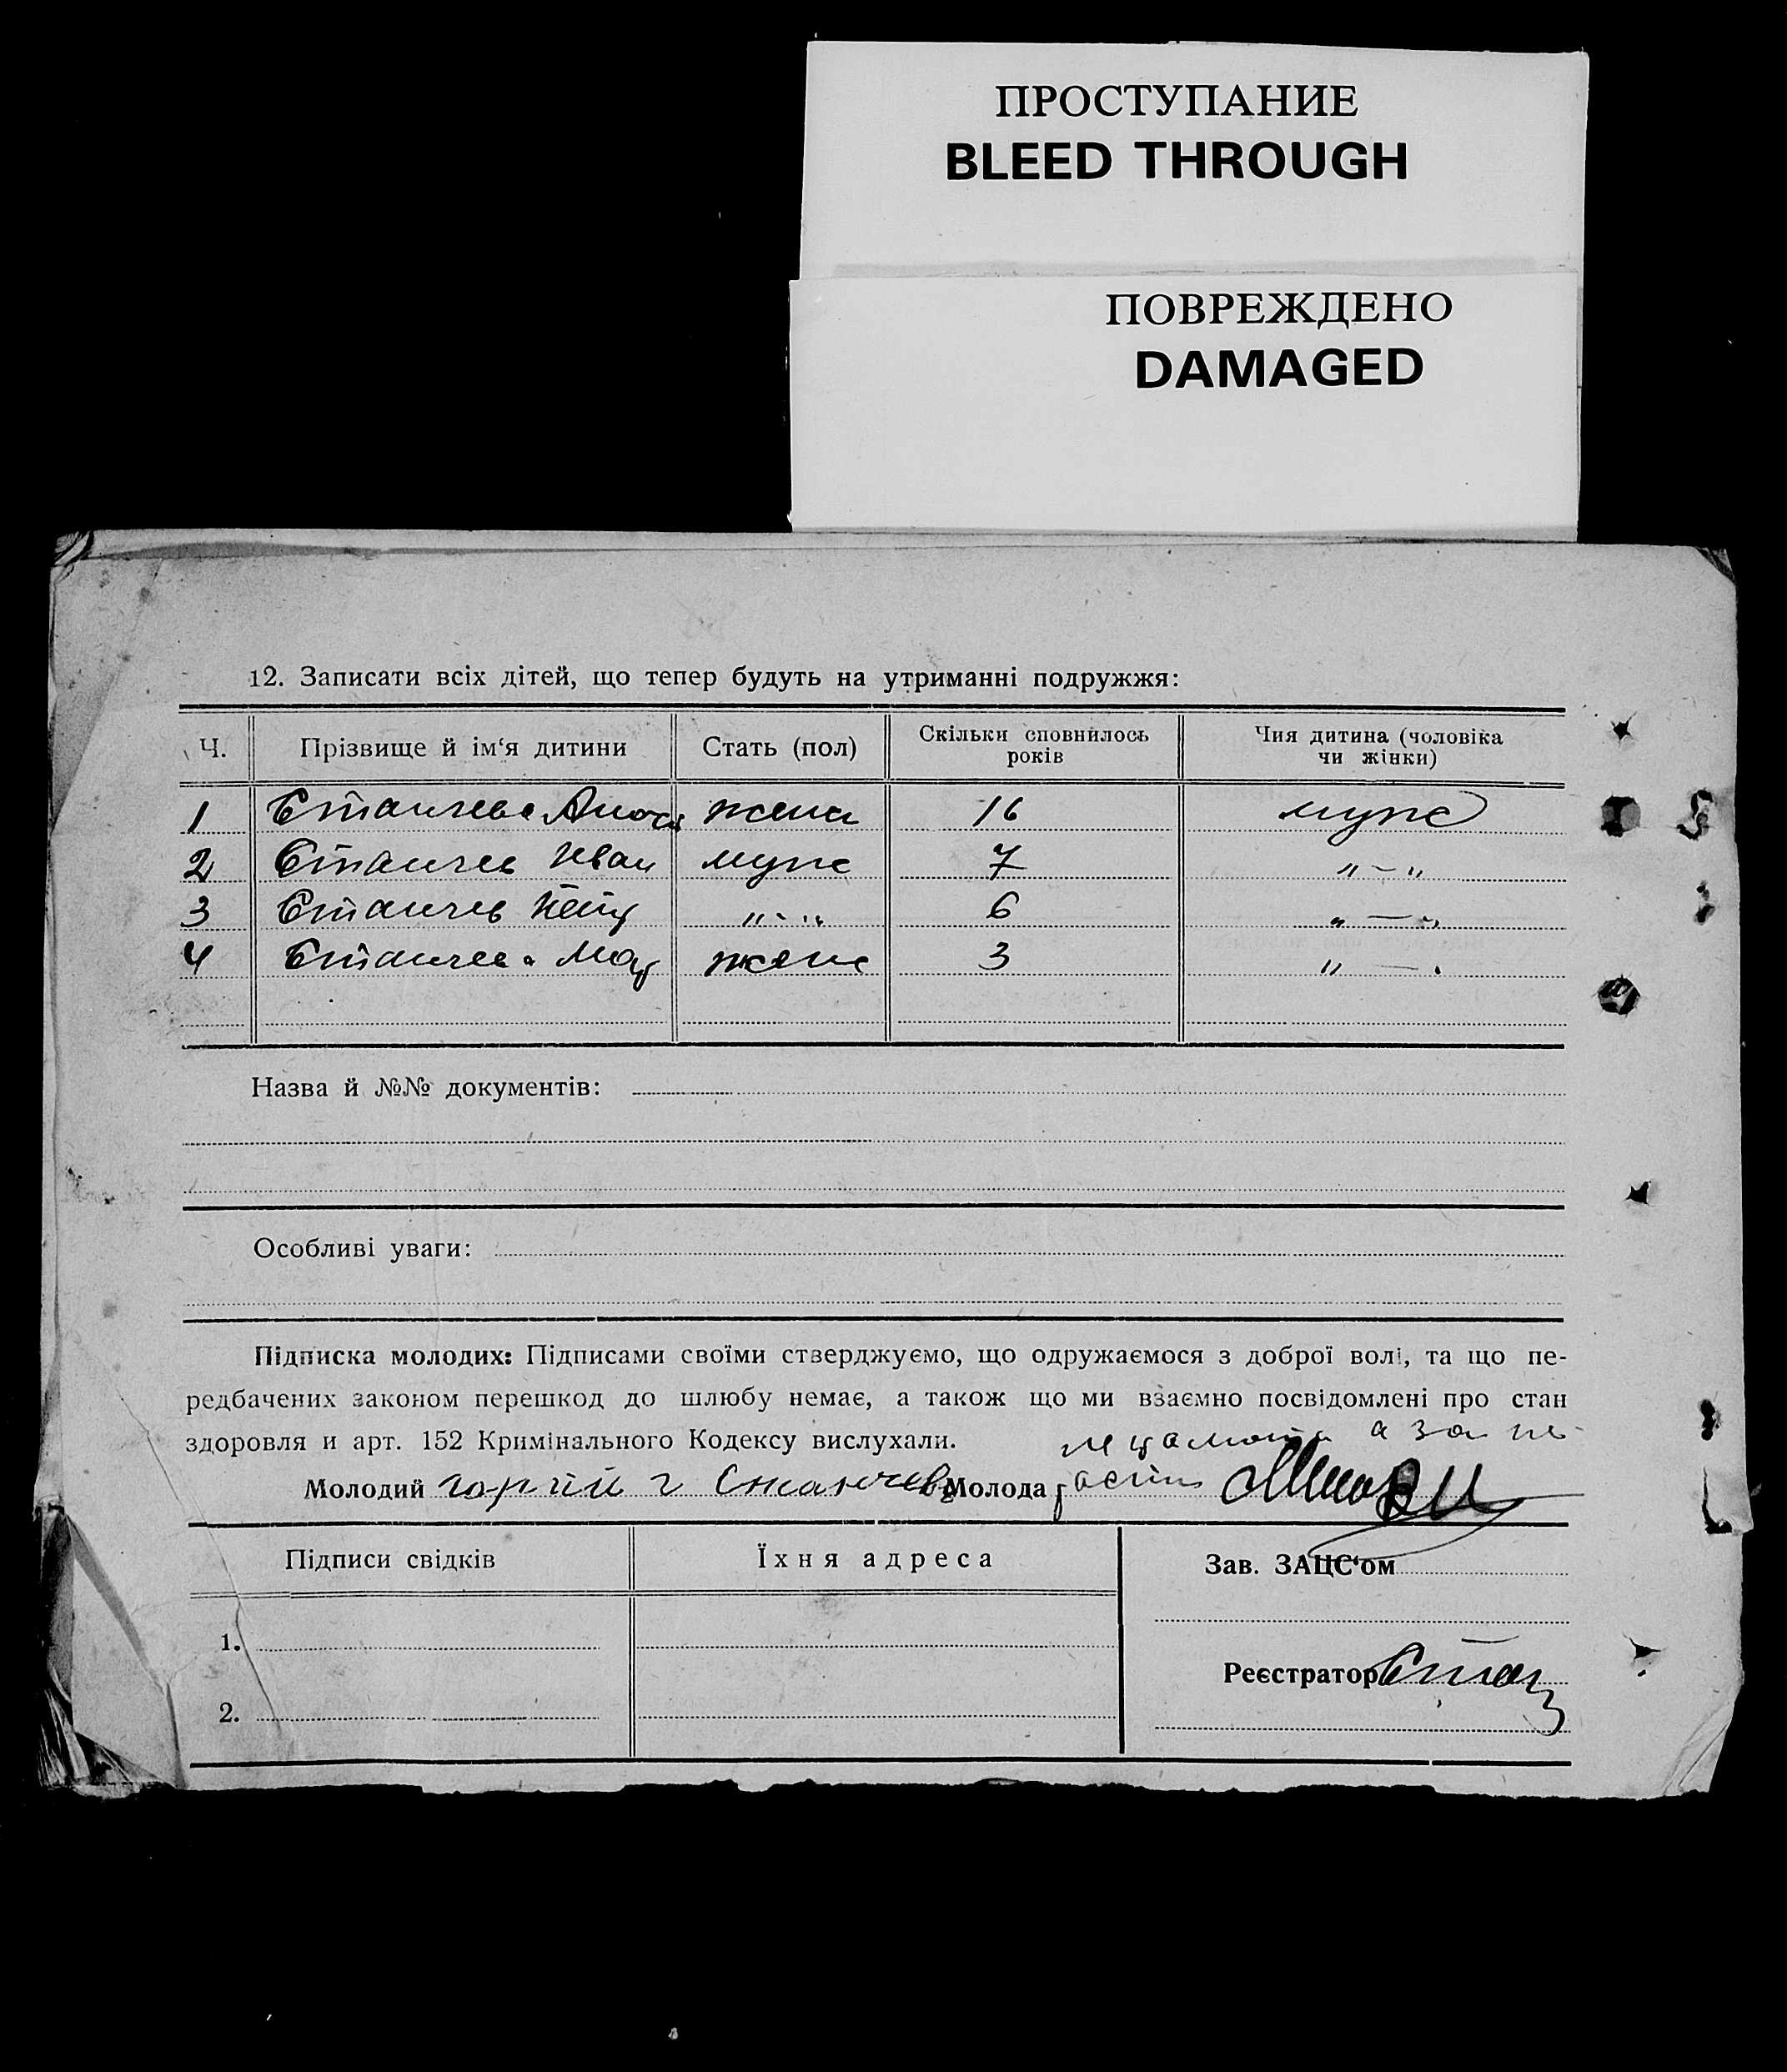 ПРОСТУПАНИЕ
BLEED THROUGH
ПОВРЕЖДЕНО
DAMAGED
12. Записати всіх дітей, що тепер будуть на утриманні подружжя:
Ч. Прізвище й ім‘я дитини Стать (пол) Скільки сповнилось років Чия дитина (чоловіка чи жінки)
1 Станчева жена 16 муже
2 Станчев Иван муже 7 "-"
3 Станчев Петр "-" 6 "-"
4 Станчева Мар жене 3 "-"
Назва й №№ документів:
Особливі уваги:
Підписка молодих: Підписами своїми стверджуємо, що одружаємося з доброї волі, та що пе-
редбачених законом перешкод до шлюбу немає, а також що ми взаємно посвідомлені про стан
здоровля и арт. 152 Кримінального Кодексу вислухали.
Молодий г Станчев Молода
Підписи свідків Їхня адреса Зав. ЗАЦС‘ом
1.
Реєстратор
2.